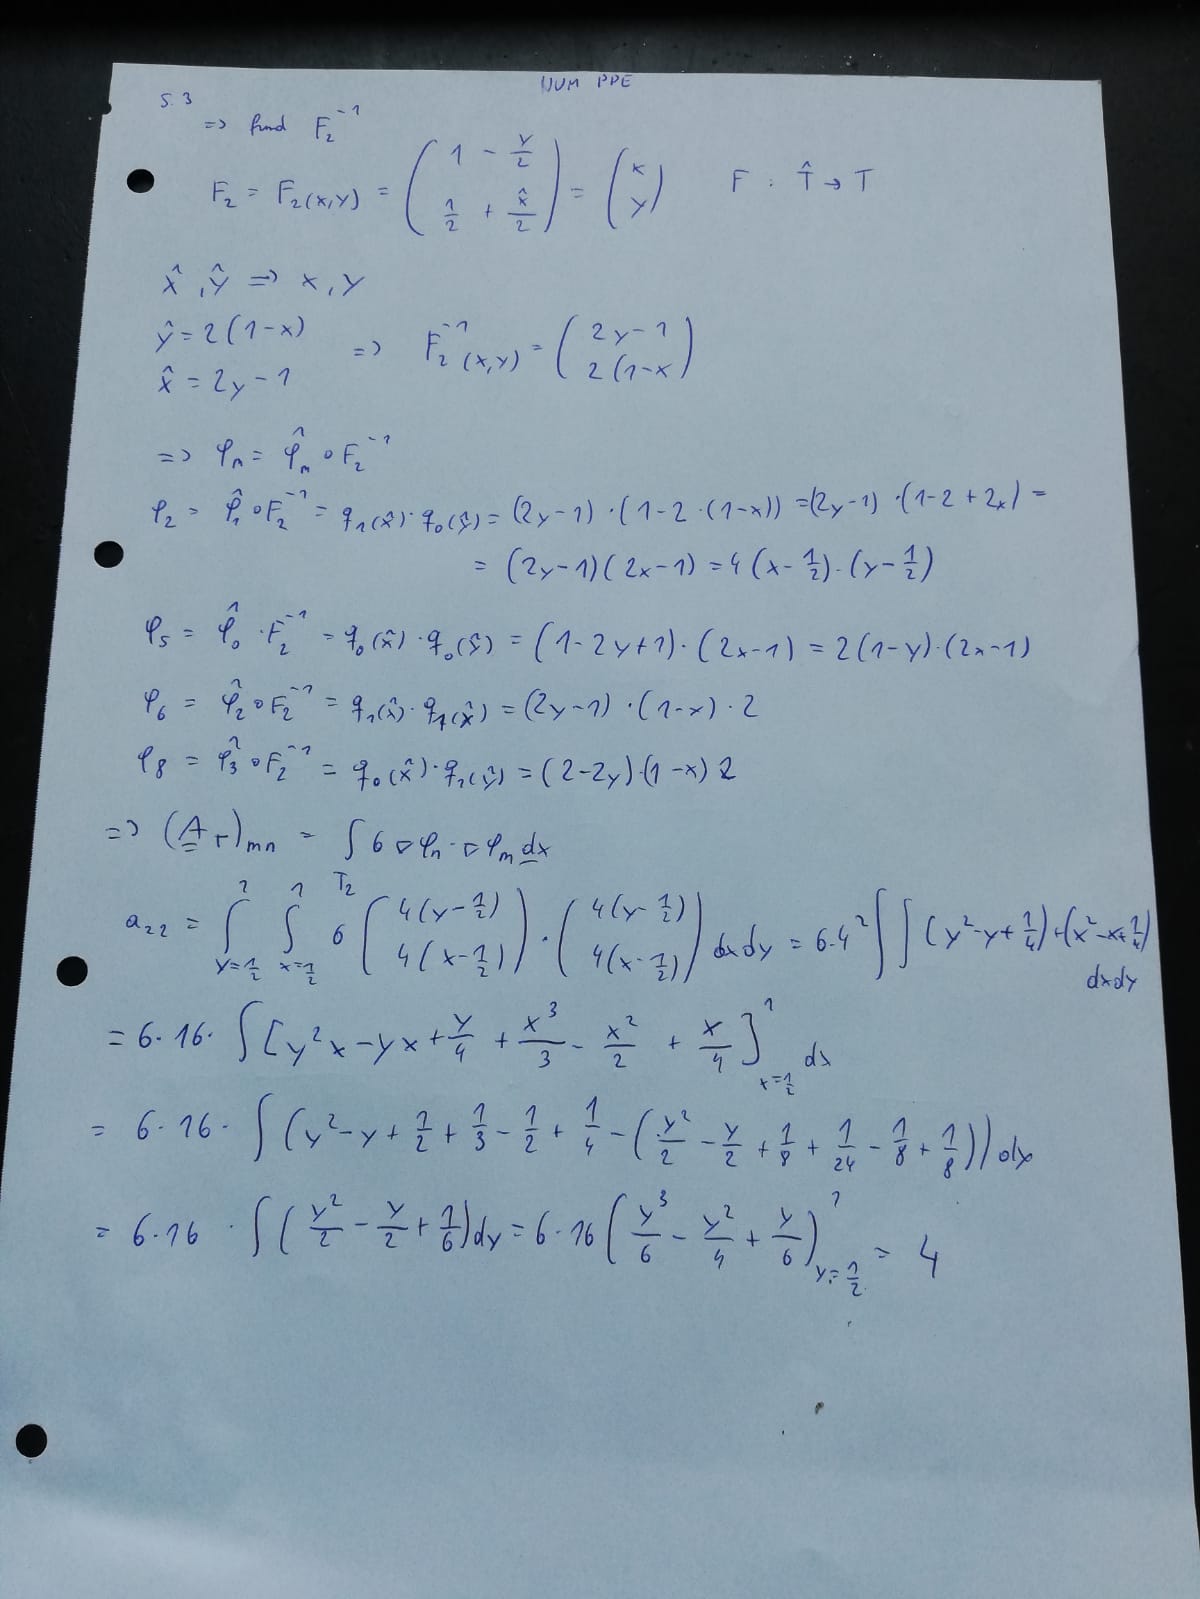 NUM PDE
5.3
=> find F₂⁻¹
F₂ = F₂(x,y) = ( 1 - y/2 ; 1/2 + x̂/2 ) = ( x ; y ) F : T̂ → T
x̂, ŷ => x, y
ŷ = 2(1-x)
x̂ = 2y - 1 => F₂⁻¹(x,y) = ( 2y-1 ; 2(1-x) )
=> φₙ = φ̂ₘ ∘ F₂⁻¹
φ₂ = φ̂₁ ∘ F₂⁻¹ = q₁(x̂) · q₀(ŷ) = (2y-1) · (1-2·(1-x)) = (2y-1) · (1-2+2x) =
= (2y-1)(2x-1) = 4(x-1/2)·(y-1/2)
φ₅ = φ̂₀ · F₂⁻¹ = q₀(x̂) · q₀(ŷ) = (1-2y+1)·(2x-1) = 2(1-y)·(2x-1)
φ₆ = φ̂₂ ∘ F₂⁻¹ = q₁(x̂) · q₁(x̂) = (2y-1) · (1-x) · 2
φ₈ = φ̂₃ ∘ F₂⁻¹ = q₀(x̂) · q₁(ŷ) = (2-2y)·(1-x) 2
=> (A_T)ₘₙ = ∫_T₂ 6 ∇φₙ · ∇φₘ dx
a₂₂ = ∫_{y=1/2}^{1} ∫_{x=1/2}^{1} 6 ( 4(y-1/2) ; 4(x-1/2) ) · ( 4(y-1/2) ; 4(x-1/2) ) dxdy = 6·4² ∫∫ (y²-y+1/4)+(x²-x+1/4) dxdy
= 6·16· ∫ [ y²x - yx + y/4 + x³/3 - x²/2 + x/4 ]_{x=1/2}^{1} dx
= 6·16· ∫ ( y² - y + 1/2 + 1/3 - 1/2 + 1/4 - ( y²/2 - y/2 + 1/8 + 1/24 - 1/8 + 1/8 ) ) dx
= 6·16 · ∫ ( y²/2 - y/2 + 1/6 ) dy = 6·16 ( y³/6 - y²/4 + y/6 )_{y=1/2}^{1} = 4